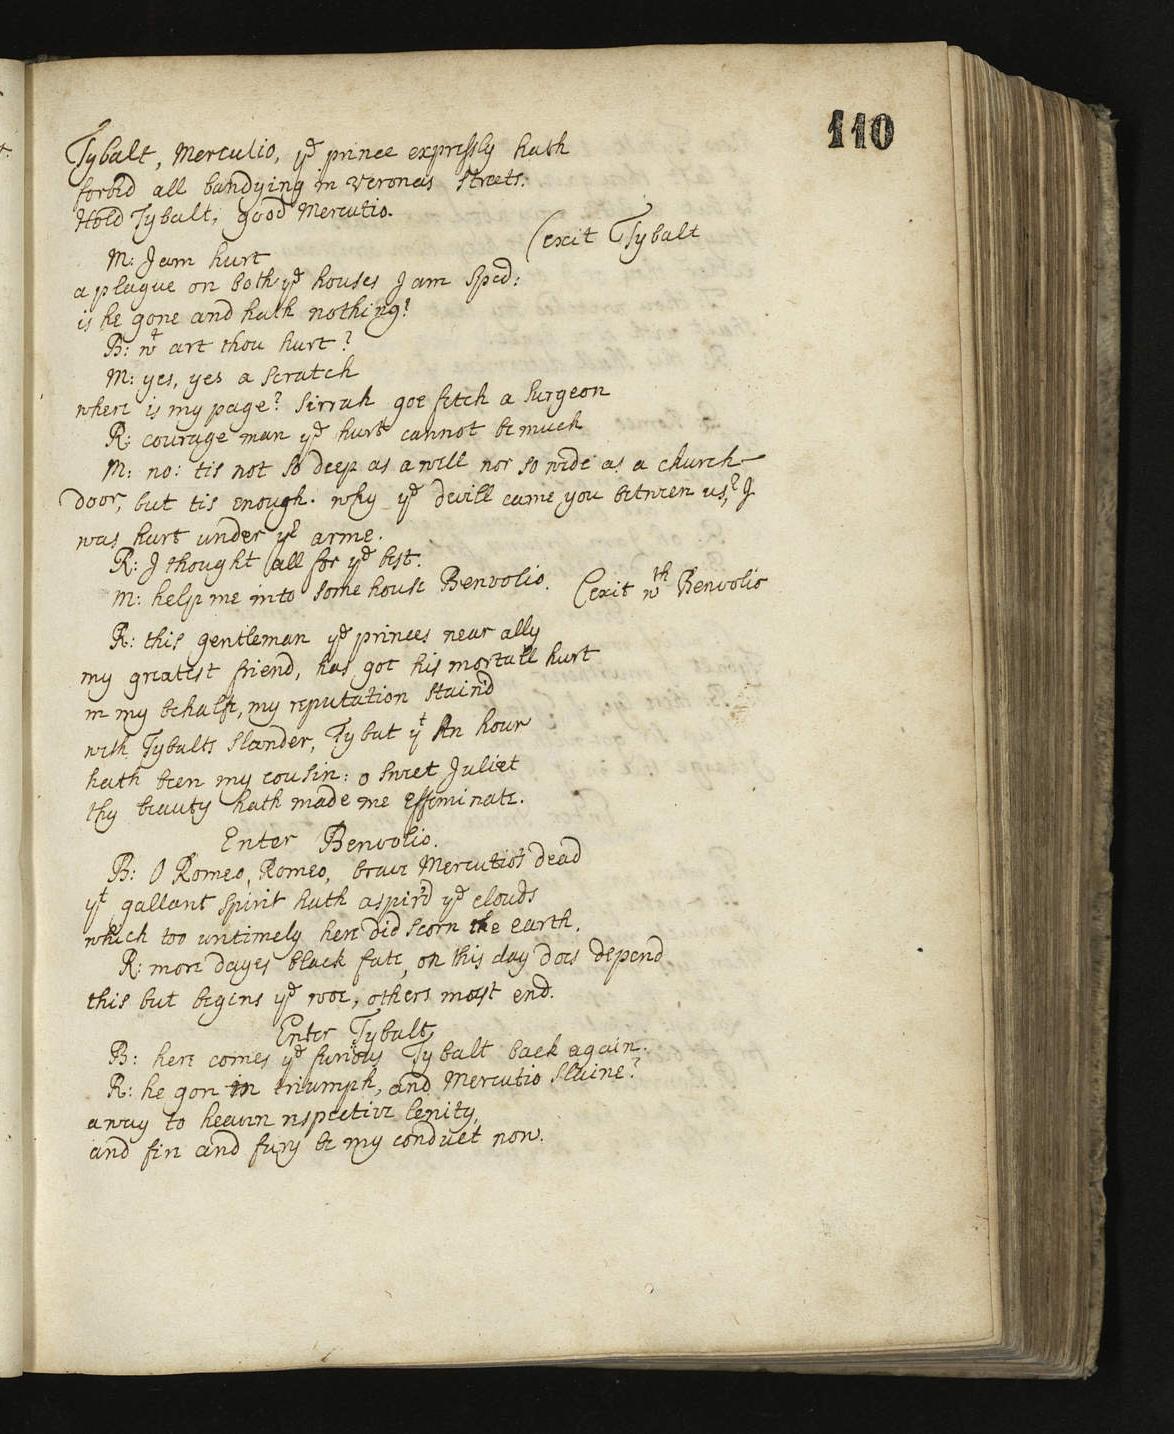 110
Tybalt, Mercutio, ye prince expressly hath
forbid all bandying in Veronas streets.
Hold Tybalt, good Mercutio.
(exit Tybalt
M: I am hurt
a plague on both ye houses I am sped:
is he gone and hath nothing?
B: wt art thou hurt?
M: yes, yes a scratch
where is my page? sirrah goe fetch a surgeon
R: courage man ye hurt cannot be much
M: no: tis not so deep as a well nor so wide as a church-
door, but tis enough. why ye devill came you between us? I
was hurt under yr arme.
R: I thought all for ye best.
M: help me into some house Benvolio. (exit wth Benvolio
R: this gentleman ye princes near ally
my greatest friend, has got his mortall hurt
in my behalfe, my reputation stain'd
with Tybalts slander, Tybalt yt An hour
hath been my cousin: o sweet Juliet
thy beauty hath made me effeminate.
Enter Benvolio.
B: O Romeo, Romeo, brave Mercutio's dead
yt gallant spirit hath aspir'd ye clouds
which too untimely here did scorn the earth.
R: more dayes black fate, on this day does depend
this but begins ye woe, others must end.
Enter Tybalt
B: here comes ye furious Tybalt back again.
R: he gon in triumph, and Mercutio slaine?
away to heaven respective lenity,
and fire and fury be my conduct now.